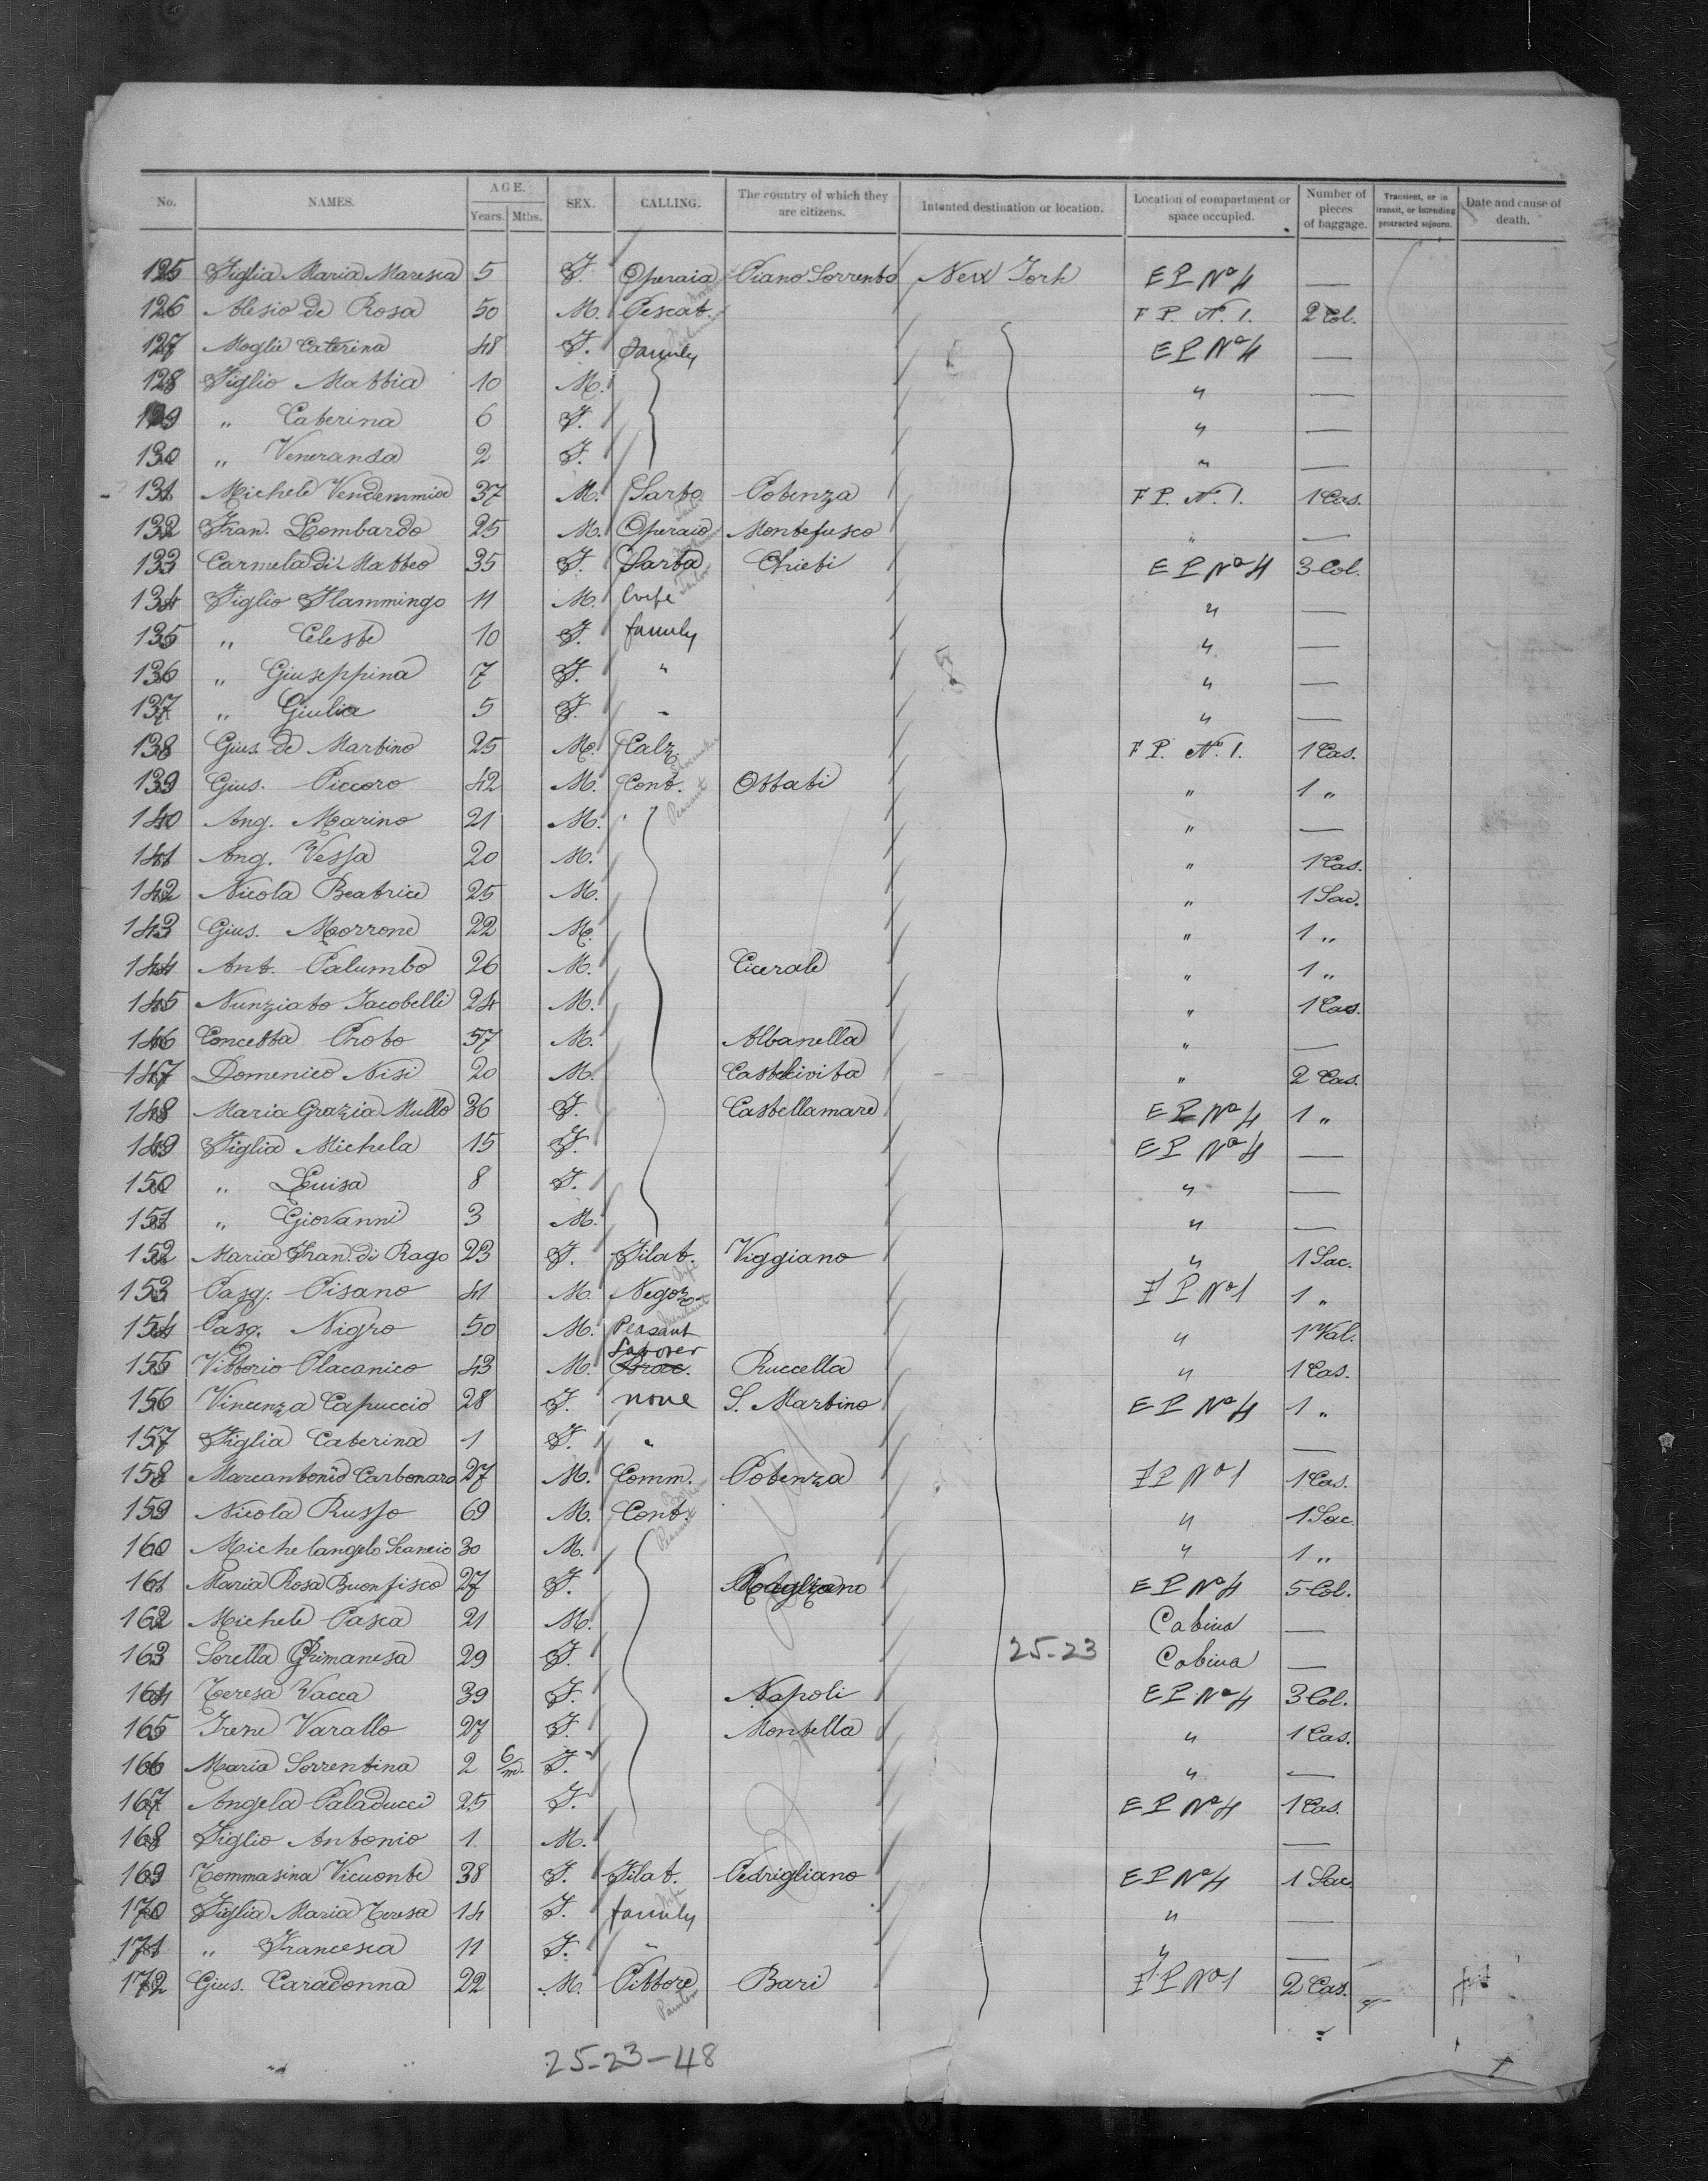 No. NAMES. AGE. Years. Mths. SEX. CALLING. The country of which they are citizens. Intented destination or location. Location of compartment or space occupied. Number of pieces of baggage. Transient, or in transit, or intending protracted sojourn. Date and cause of death.
125 Figlia Maria Maresca 5 F. Operaia Piano Sorrento New York E P Nº 4 —
126 Alesio de Rosa 50 M. Pescat. F P. Nº. 1. 2 Col.
127 Moglie Caterina 48 F. family E P Nº 4 —
128 Figlio Mattia 10 M. " —
129 " Caterina 6 F. " —
130 " Veneranda 2 F. " —
131 Michele Vendemmia 37 M. Sarto Tailor Potenza F P. Nº. 1. 1 Cas.
132 Fran. Lombardo 25 M. Operaio Montefusco " —
133 Carmela di Matteo 35 F. Sarta Tailor Chieti E P Nº 4 3 Col.
134 Figlio Flammingo 11 M. wife " —
135 " Celeste 10 F. family " —
136 " Giuseppina 7 F. " " —
137 " Giulia 5 F. " " —
138 Gius. de Martino 25 M. Calz. Shoemaker F P. Nº. 1. 1 Cas.
139 Gius. Piccoro 42 M. Cont. Peasant Ottati " 1 "
140 Ang. Marino 21 M. " —
141 Ang. Vessa 20 M. " 1 Cas.
142 Nicola Beatrice 25 M. " 1 Sac.
143 Gius. Morrone 22 M. " 1 "
144 Ant. Palumbo 26 M. Cicerale " 1 "
145 Nunziato Jacobelli 24 M. " 1 Cas.
146 Concetta Proto 57 M. Albanella " —
147 Domenico Nisi 20 M. Castelcivita " 2 Cas.
148 Maria Grazia Mullo 36 F. Castellamare E P Nº 4 1 "
149 Figlia Michela 15 F. E P Nº 4 —
150 " Luisa 8 F. " —
151 " Giovanni 3 M. " —
152 Maria Fran. di Rago 23 F. Filat. Viggiano " 1 Sac.
153 Pasq. Pisano 41 M. Negoz. Merchant F P Nº 1 1 "
154 Pasq. Nigro 50 M. Peasant " 1 Val.
155 Vittorio Placanico 43 M. Laborer Brac. Ruccella " 1 Cas.
156 Vincenza Capuccio 28 F. none S. Martino E P Nº 4 1 "
157 Figlia Caterina 1 F. " —
158 Marcantonio Carbonaro 27 M. Comm. Potenza F P Nº 1 1 Cas.
159 Nicola Russo 69 M. Cont. Peasant " 1 Sac.
160 Michelangelo Scancio 30 M. " 1 "
161 Maria Rosa Buonfisco 27 F. E P Nº 4 5 Col.
162 Michele Pasca 21 M. Cabina —
163 Sorella Grimanesa 29 F. 25-23 Cabina —
164 Teresa Vacca 39 F. Napoli E P Nº 4 3 Col.
165 Irene Varallo 27 F. Montella " 1 Cas.
166 Maria Sorrentina 2 6/m. F. " —
167 Angela Paladucci 25 F. E P Nº 4 1 Cas.
168 Figlio Antonio 1 M. —
169 Tommasina Vicuonte 38 F. Filat. Pedrigliano E P Nº 4 1 Sac.
170 Figlia Maria Teresa 14 F. family " —
171 " Francesca 11 F. " " —
172 Gius. Caradonna 22 M. Pittore Painter Bari F P Nº 1 2 Cas.
25-23-48